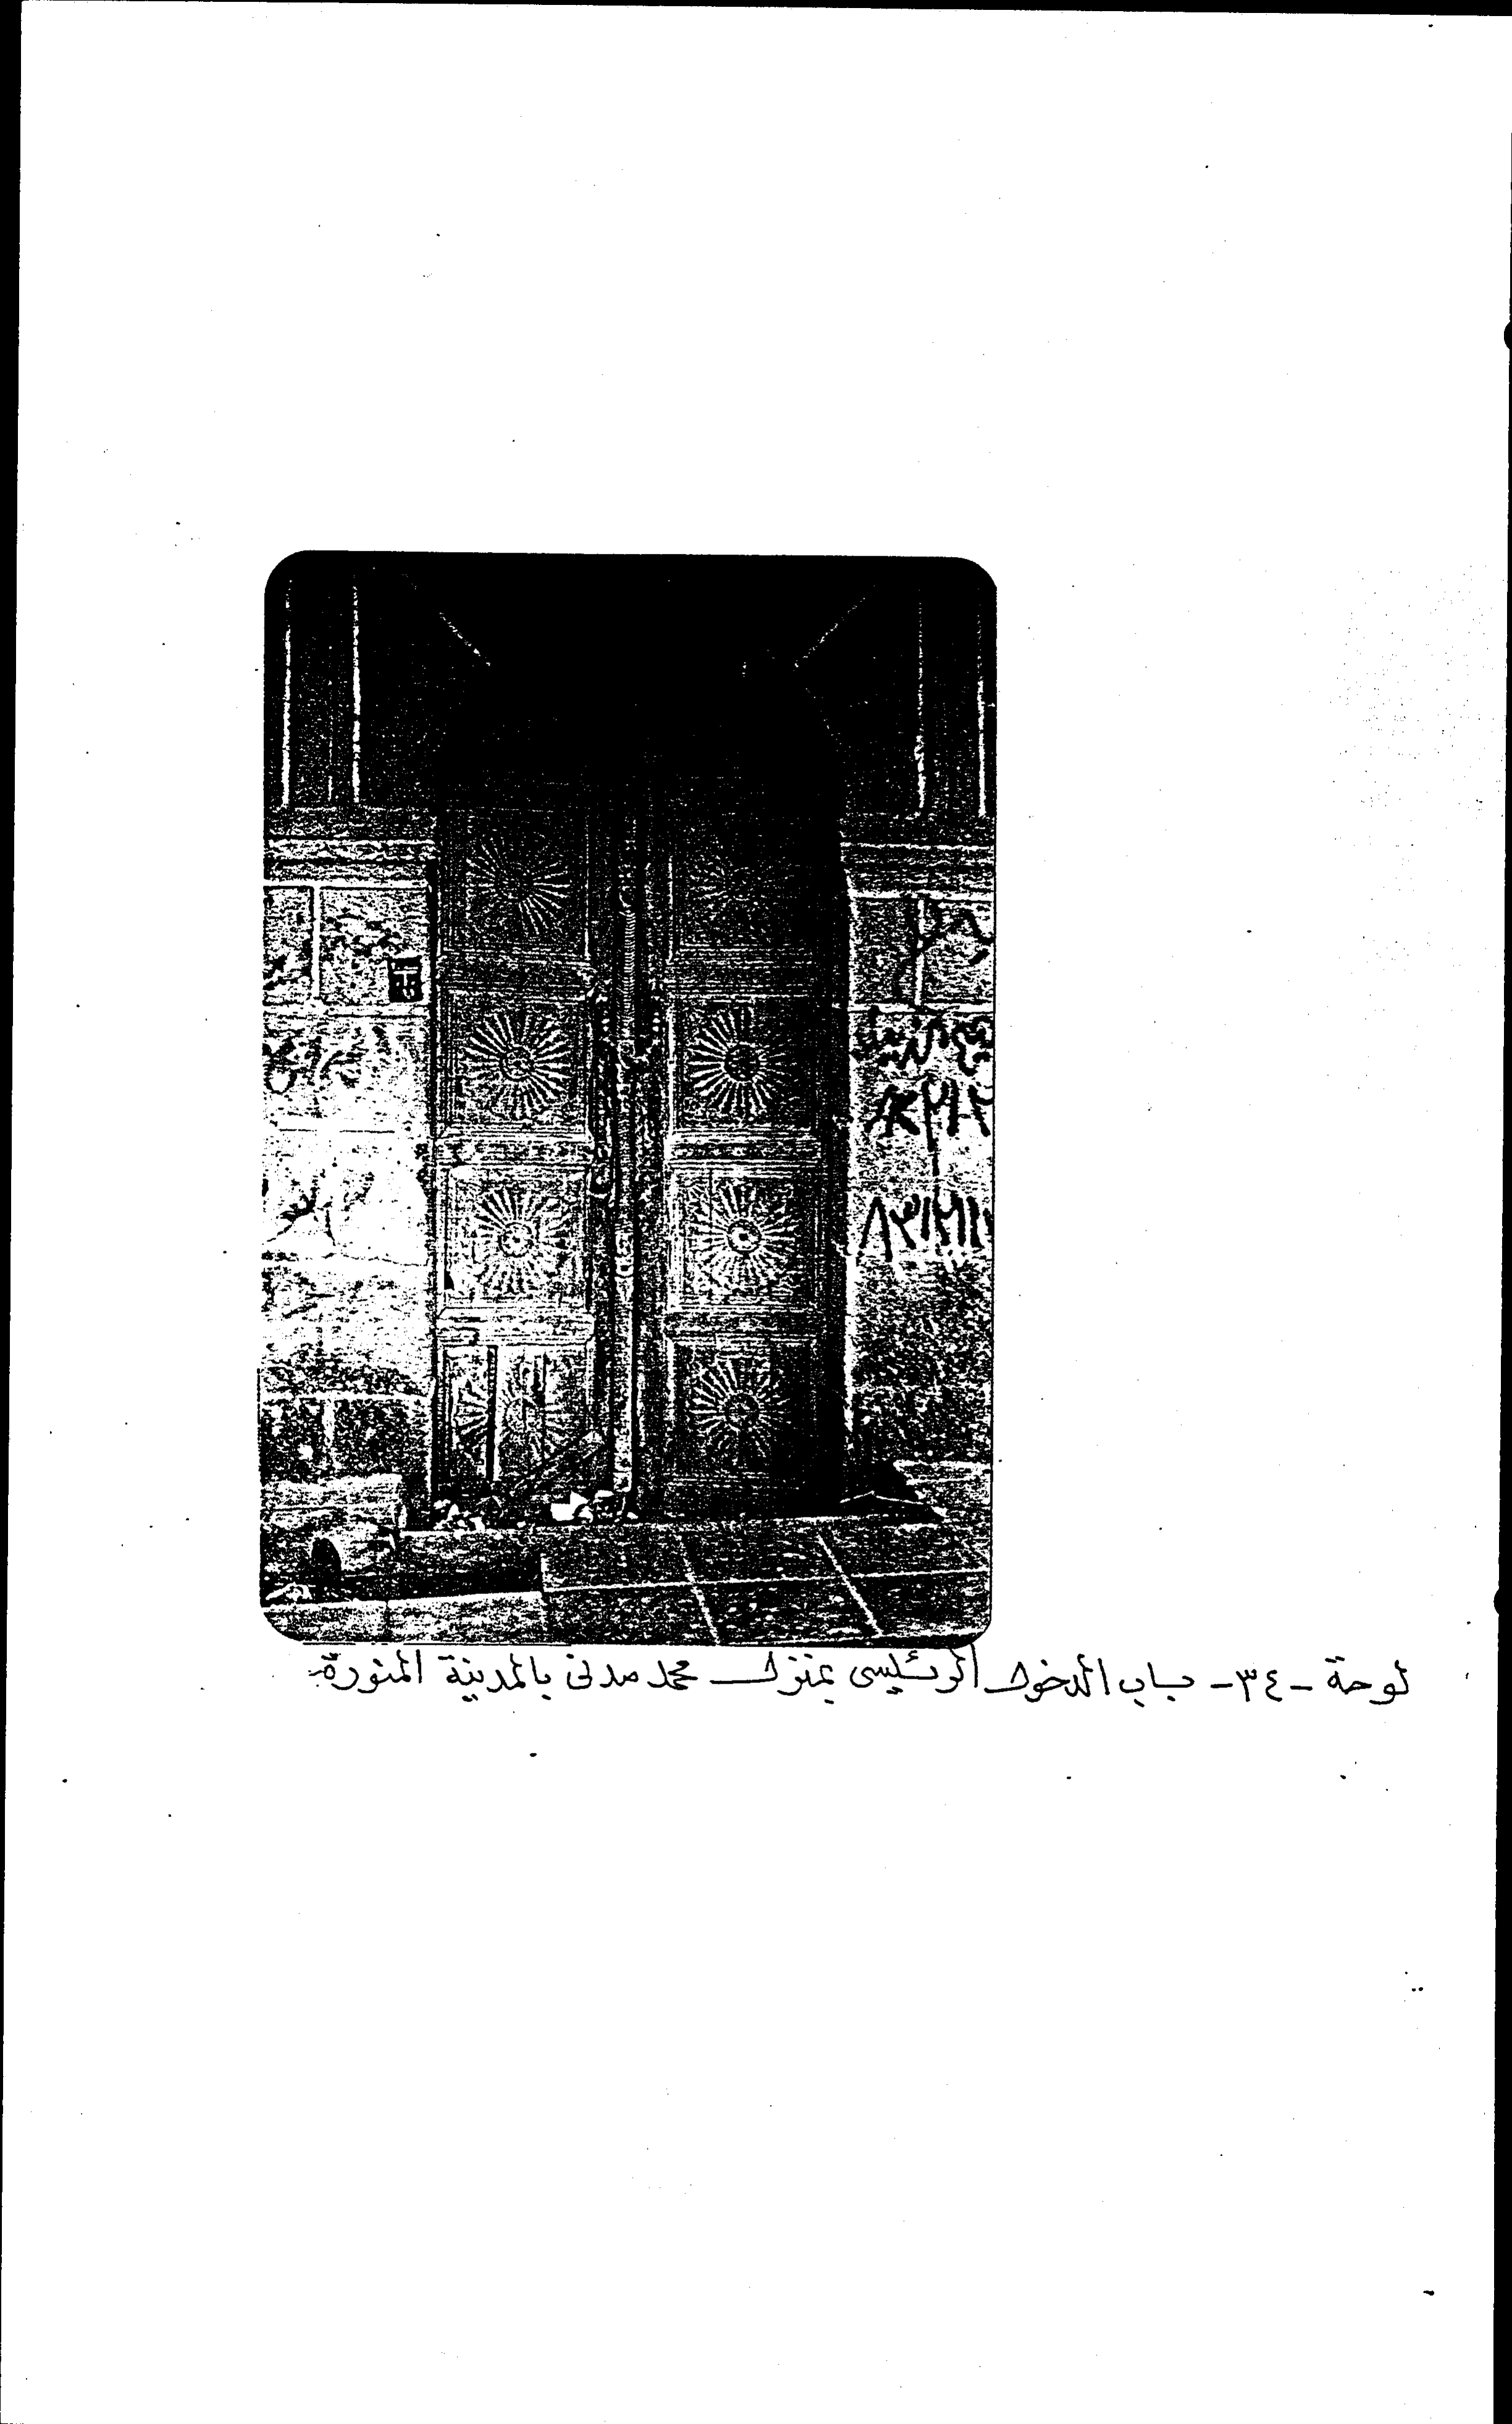 لوحة - ٣٤ - باب الدخول الرئيسى بمنزل محمد مدنى بالمدينة المنورة.